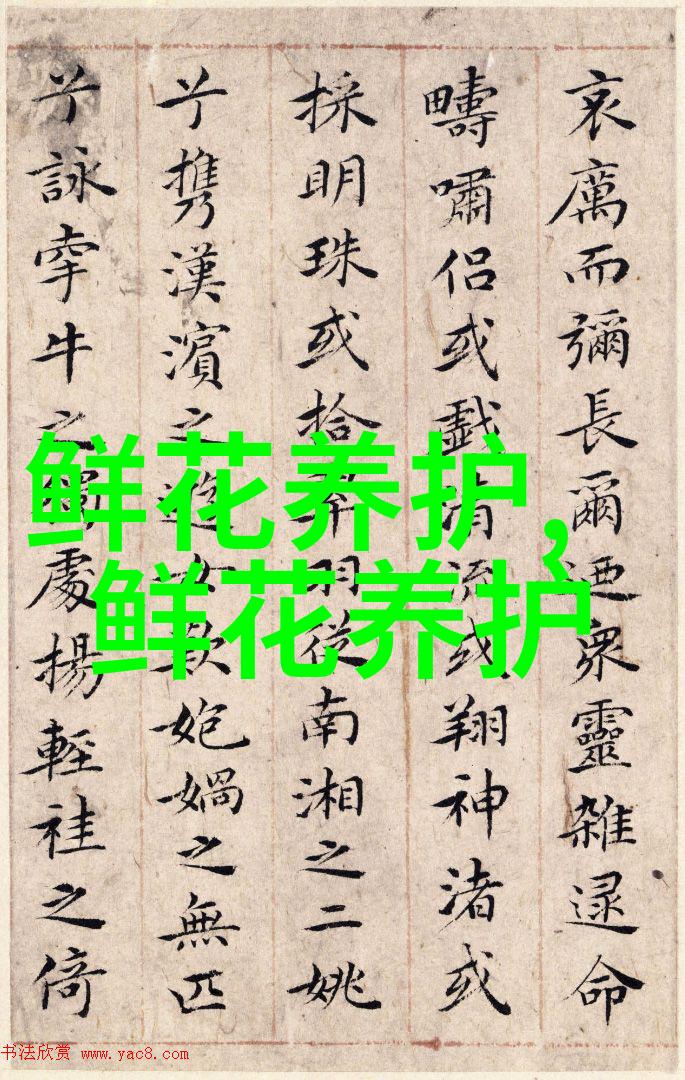 哀厲而彌長爾迺衆靈雜遝命
疇嘯侶或戲清流或翔神渚或
採明珠或拾翠羽從南湘之二姚
兮攜漢濱之遊女歎媧之無匹
兮詠牽牛之獨處揚輕袿之倚
鲜花养护，
鲜花养护
书法欣赏 www.yac8.com